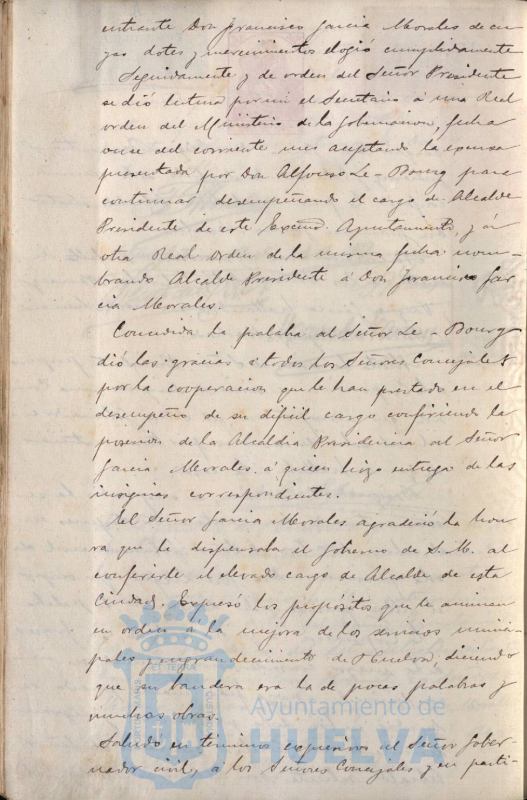 entrante Don Francisco Garcia Morales de cu-
yas dotes y merecimientos elogió cumplidamente
Seguidamente y de orden del Señor Presidente
se dió lectura por mi el Secretario á una Real
orden del Ministerio de la Gobernacion, fecha
once del corriente mes aceptando la escusa
presentada por Don Alfonso Le-Bourg para
continuar desempeñando el cargo de Alcalde
Presidente de este Excmo. Ayuntamiento, y á
otra Real Orden de la misma fecha nom-
brando Alcalde Presidente á Don Francisco Gar
cia Morales.
Concedida la palabra al Señor Le-Bourg
dió las gracias á todos los Señores Concejales
por la cooperacion que le han prestado en el
desempeño de su dificil cargo confiriendo la
posesion de la Alcaldia Presidencia al Señor
Garcia Morales á quien hizo entrega de las
insignias correspondientes.
El Señor Garcia Morales agradeció la hon
ra que le dispensaba el Gobierno de S. M. al
conferirle el elevado cargo de Alcalde de esta
Ciudad. Expresó los propósitos que le animan
en orden á la mejora de los servicios munici
pales y engrandecimiento de Huelva, diciendo
que su bandera era la de pocas palabras y
muchas obras.
Saludó en términos expresivos al Señor Gober-
nador civil, á los Señores Concejales y en parti-
Ayuntamiento de
HUELVA